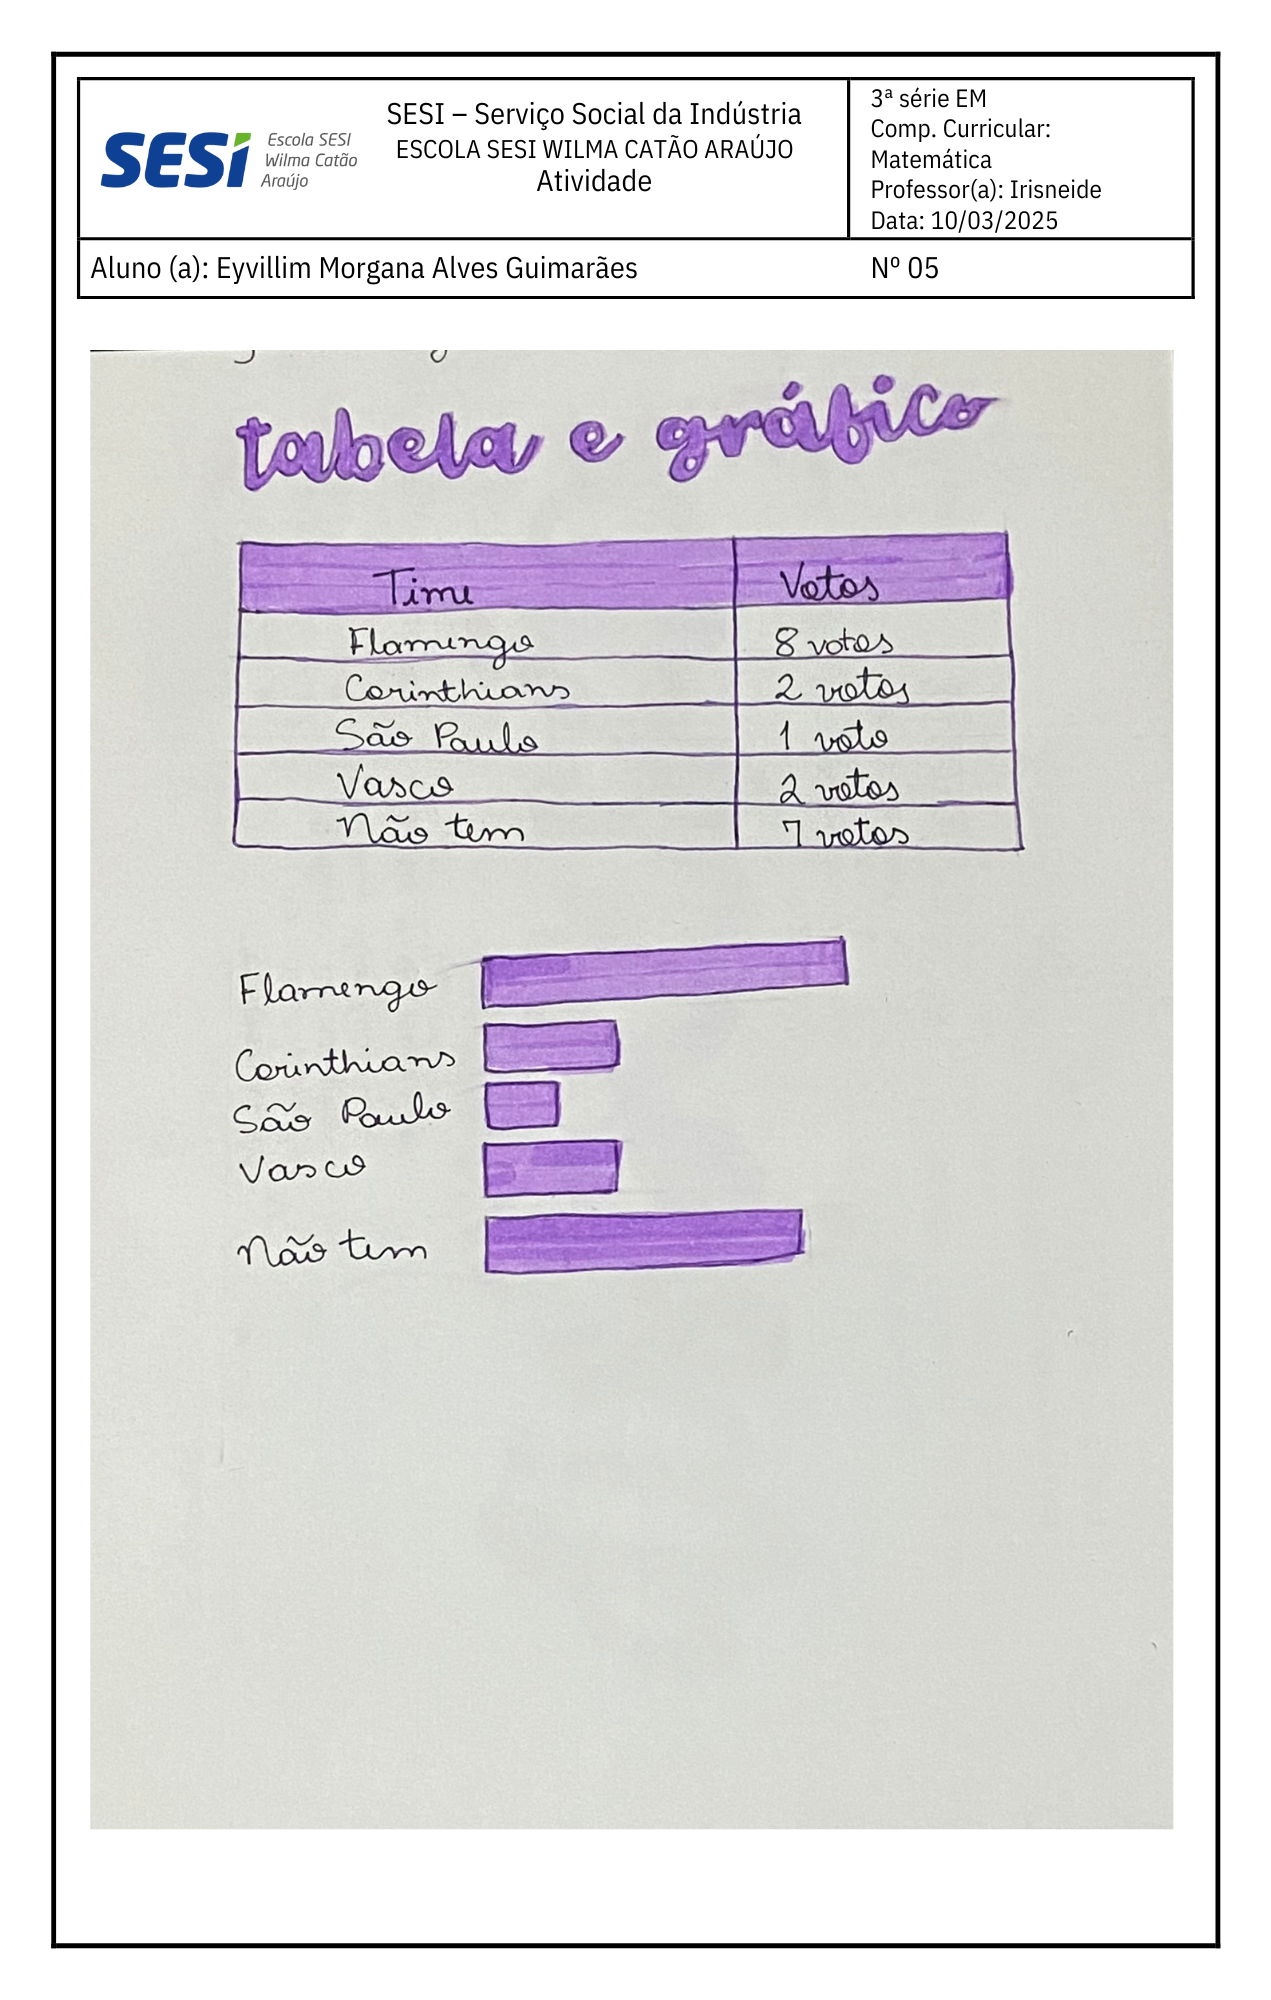 SESI
Escola SESI
Wilma Catão
Araújo
SESI – Serviço Social da Indústria
ESCOLA SESI WILMA CATÃO ARAÚJO
Atividade
3ª série EM
Comp. Curricular:
Matemática
Professor(a): Irisneide
Data: 10/03/2025
Aluno (a): Eyvillim Morgana Alves Guimarães Nº 05
tabela e gráfico
Time Votos
Flamengo 8 votos
Corinthians 2 votos
São Paulo 1 voto
Vasco 2 votos
Não tem 7 votos
Flamengo
Corinthians
São Paulo
Vasco
Não tem